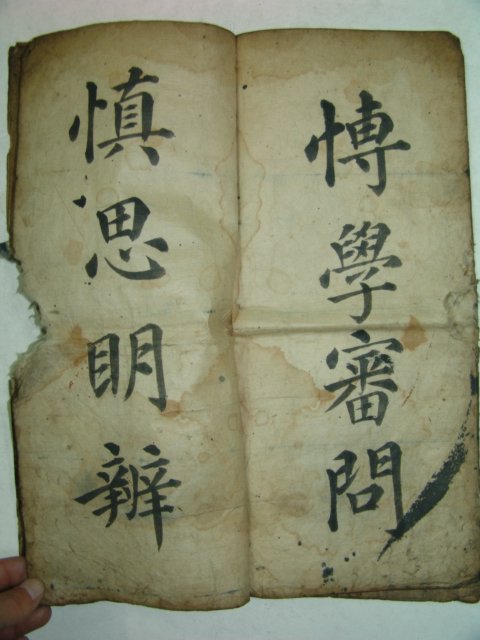 博學審問
慎思明辨